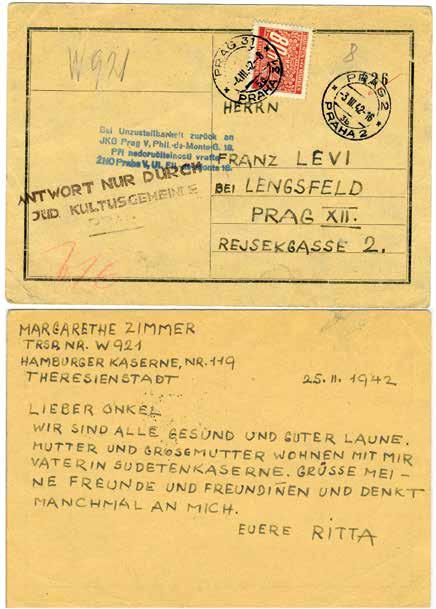 W 921
8
PRAG 31
-4.III.42-8
PRAHA 31
80
HERRN
26
PRAG 2
-3.III.42-16
3b
PRAHA 2
Bei Unzustellbarkeit zurück an
JKG Prag V, Phil.-de-Monte-G. 18.
Při nedoručitelnosti vraťte
ŽNO Praha V, Ul. Fil. de Monte 18.
ANTWORT NUR DURCH
JÜD. KULTUSGEMEINDE
PRAG
FRANZ LEVI
BEI LENGSFELD
PRAG XII.
REJSEKGASSE 2.
MARGARETHE ZIMMER
TRSP. NR. W 921
HAMBURGER KASERNE, NR. 119
THERESIENSTADT 25. II. 1942
LIEBER ONKEL
WIR SIND ALLE GESUND UND GUTER LAUNE.
MUTTER UND GROSSMUTTER WOHNEN MIT MIR
VATER IN SUDETENKASERNE. GRÜSSE MEI-
NE FREUNDE UND FREUNDIÑEN UND DENKT
MANCHMAL AN MICH.
EUERE RITTA